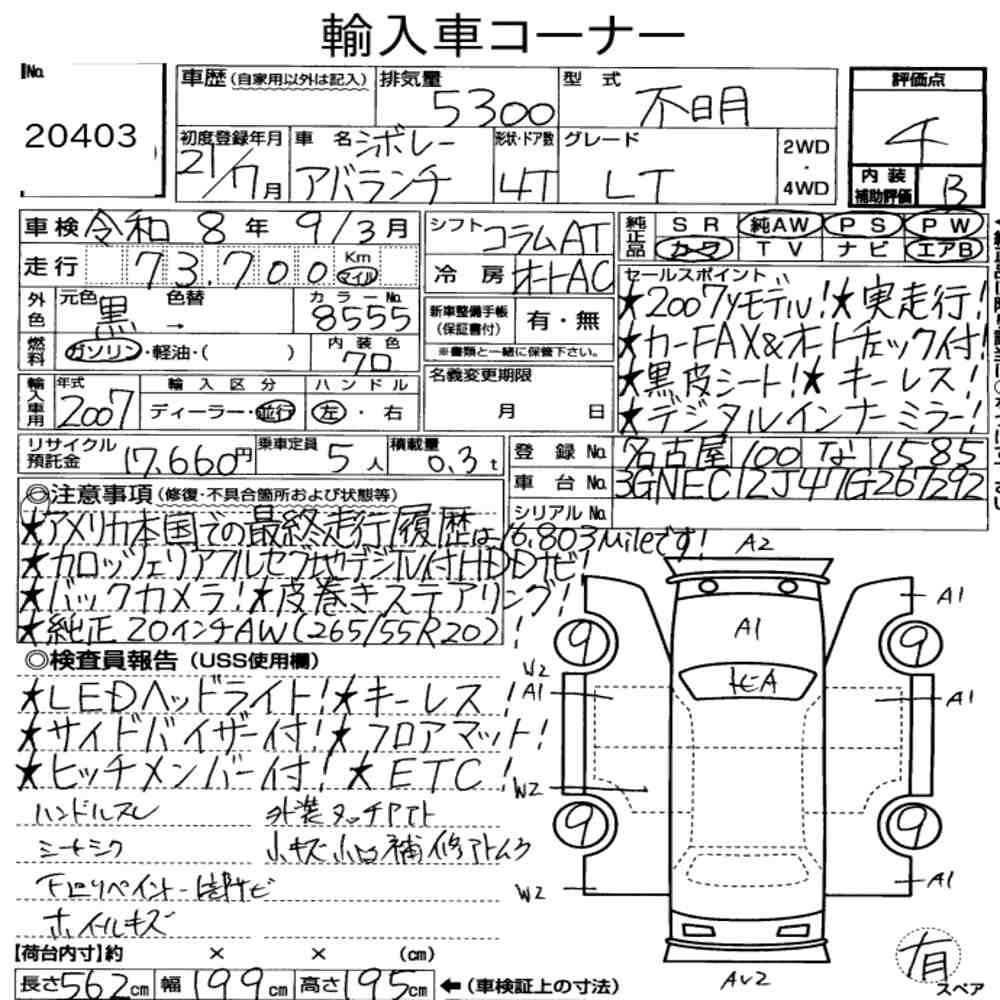 輸入車コーナー
No. 20403
車歴（自家用以外は記入） 排気量 5300 型式 不明 評価点 4
初度登録年月 21/7月 車名 シボレー アバランチ 形状・ドア数 4T グレード LT 2WD・4WD 内装補助評価 B
車検 令和8年9/3月 シフト コラムAT 純正品 SR 純AW PS PW
走行 73,700 Km マイル 冷房 オートAC カーフ TV ナビ エアB
外色 元色 黒 色替 → カラーNo. 8555 新車整備手帳（保証書付） 有・無 セールスポイント
燃料 ガソリン・軽油・（ ） 内装色 70 ※書類と一緒に保管下さい。
★2007yモデル！★実走行！
★カーFAX&オートチェック付！
★黒皮シート！★キーレス！
★デジタルインナーミラー！
輸入車用 年式 2007 輸入区分 ディーラー・並行 ハンドル 左・右 名義変更期限 月 日
リサイクル預託金 17,660円 乗車定員 5人 積載量 0.3t 登録No. 名古屋 100 な 1585
車台No. 3GNEC12J47G267292
シリアルNo.
◎注意事項（修復・不具合箇所および状態等）
★アメリカ本国での最終走行履歴は16,803Mileです！
★カロッツェリアフルセグ地デジTV付HDDナビ！
★バックカメラ！★皮巻きステアリング！
★純正20インチAW（265/55R20）！
◎検査員報告（USS使用欄）
★LEDヘッドライト！★キーレス！
★サイドバイザー付！★フロアマット！
★ヒッチメンバー付！★ETC！
ハンドルスレ 外装タッチアト
シートシワ 小キズ小凹補修アトムラ
下回りペイント一部サビ
ホイルキズ
A2
A1
A1
9 9
W2
A1
A1
W2
9 9
W2
A1
AW2
有
スペア
【荷台内寸】約 × × （cm）
長さ562cm 幅199cm 高さ195cm ←（車検証上の寸法）